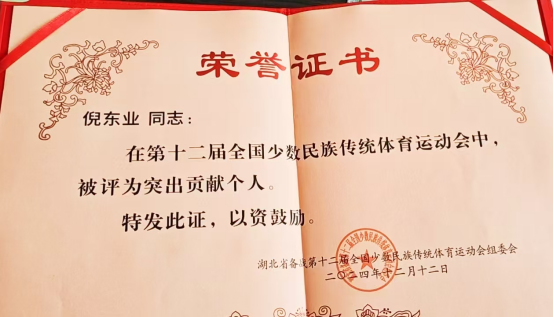 荣誉证书
倪东业 同志：
在第十二届全国少数民族传统体育运动会中，
被评为突出贡献个人。
特发此证，以资鼓励。
湖北省备战第十二届全国少数民族传统体育运动会组委会
二〇二四年十二月十二日